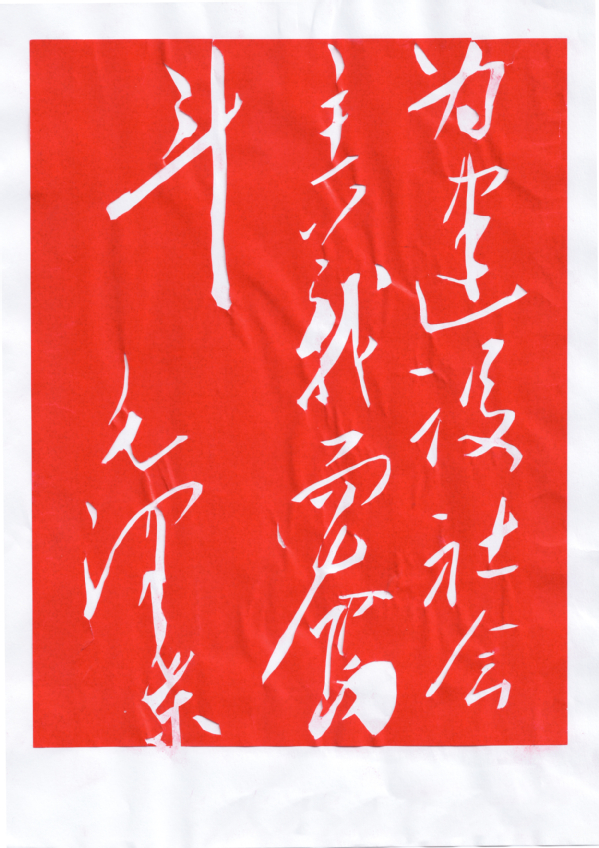 为建设社会
主义而奋
斗
毛泽东